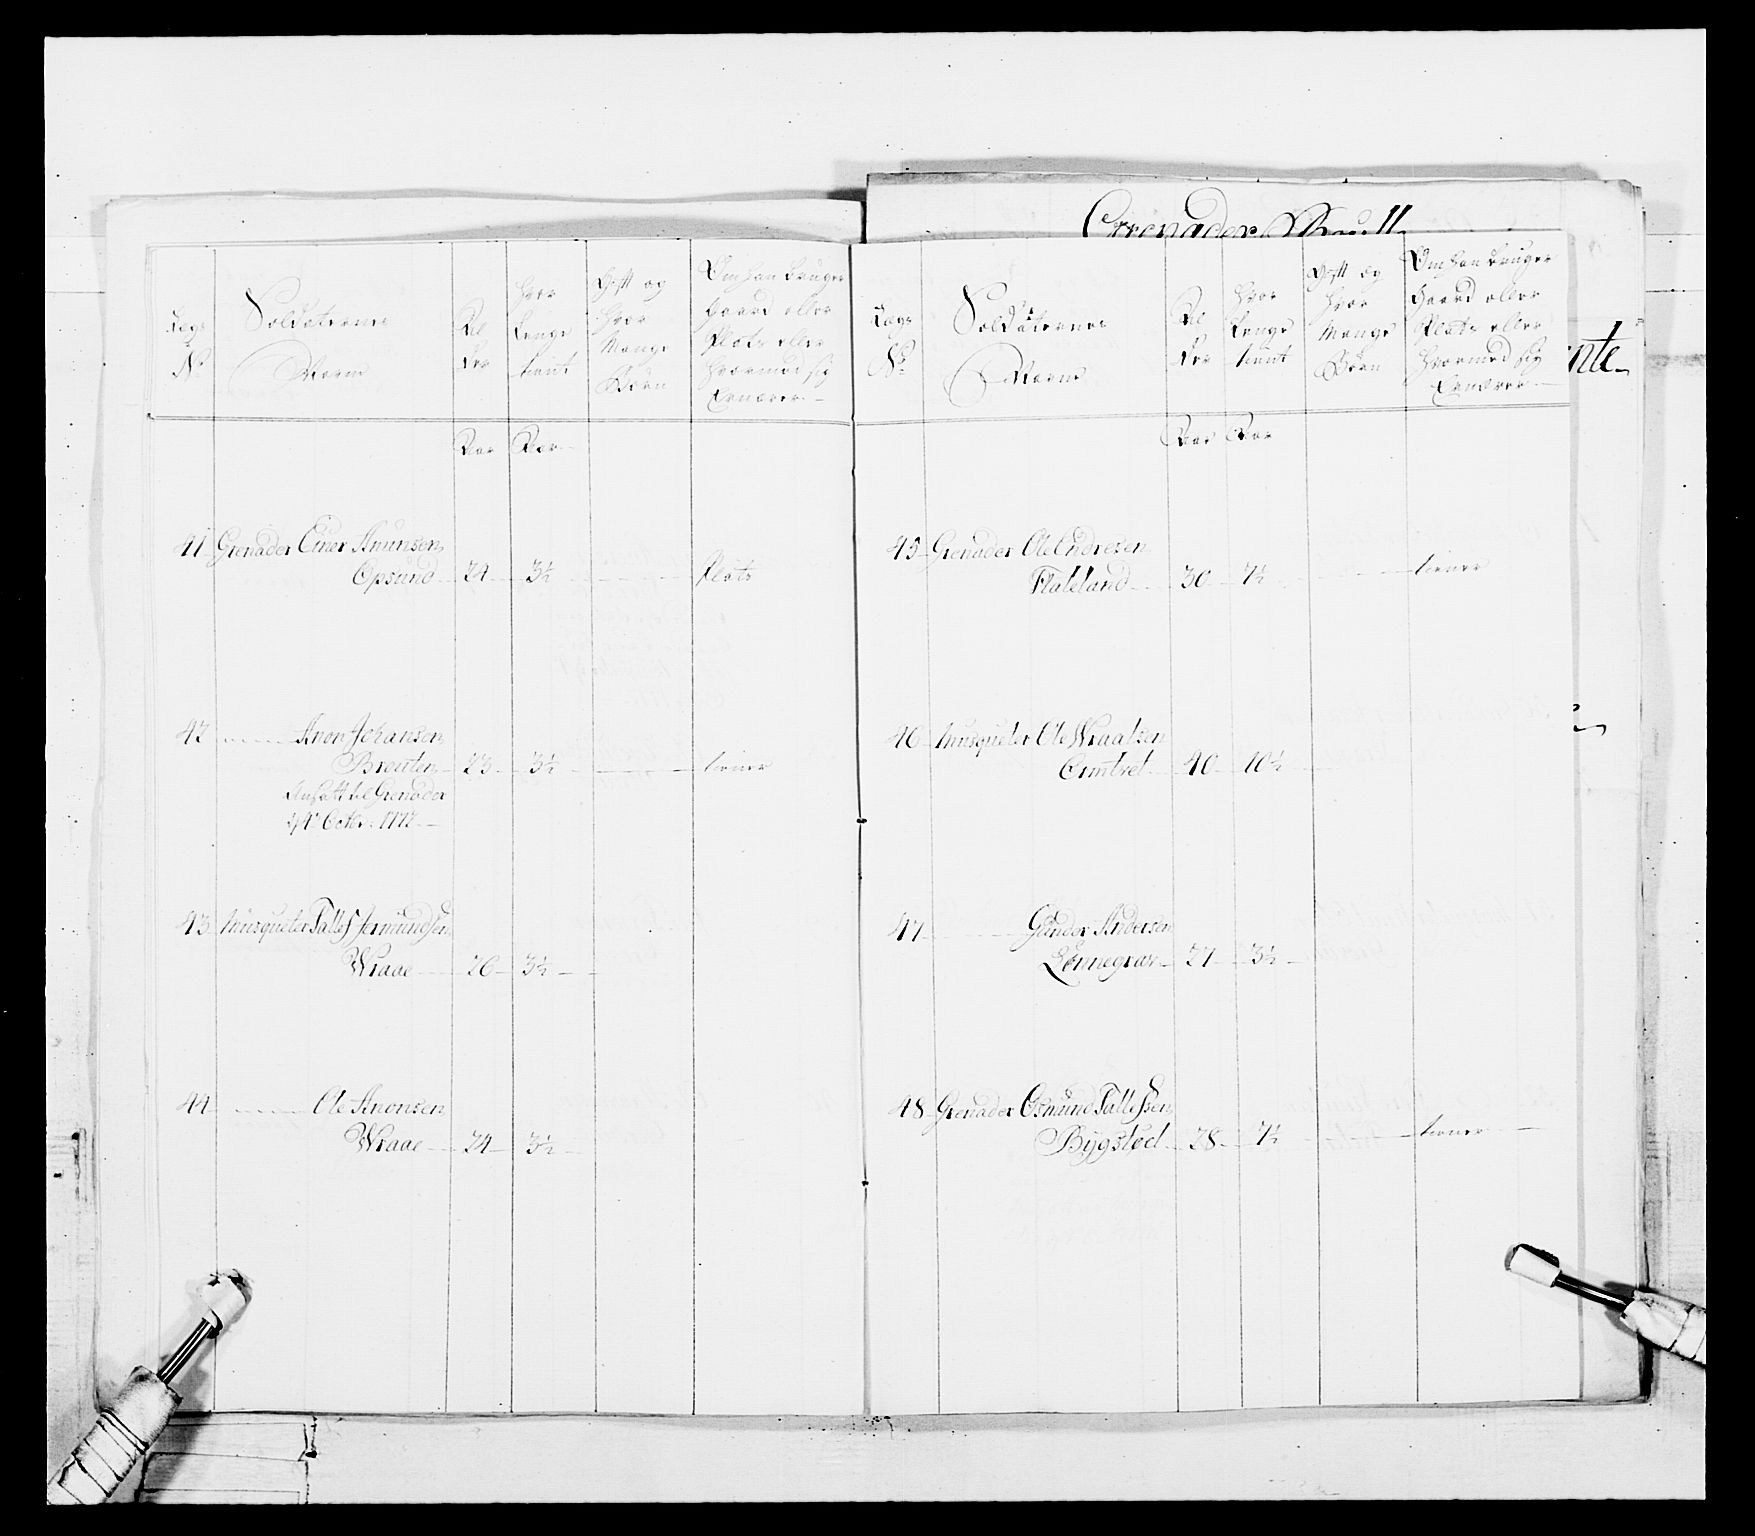 Grenader Rull
Lægs
No
Soldaternes
Navne
Al
der
hvor
Længe
tient
Gift og
Hvor
Mange
Børn
Om han bruger
Gaard eller
Plats eller
hvormed sig
Ernærer
Aar Aar
41 Grenader Einer Amunsen
Opsund 24 3½ Plats
42 Anon Johansen
Breuten 23 3½ tiener
Ansatt til Grenader
4 Octbr: 1772
43 Musqueter Tallef Jermundsen
Wraae 26 3½
44 Ole Anonsen
Wraae 24 3½
Lægs
No
Soldaternes
Navne
Al
der
Hvor
Længe
tient
Gift og
Hvor
Mange
Børn
Om han bruger
Gaard eller
Plats eller
hvormed sig
Ernærer
Aar Aar
45 Grenader Ole Endresen
Flateland 30 7½ tiener
46 Musqueter Ole Wraalsen
40 10½
47 Gunder Andersen
Lønnegrav 27 3½
48 Grenader Osmund Tallefsen
Bygsted 28 7½ tiener
nte